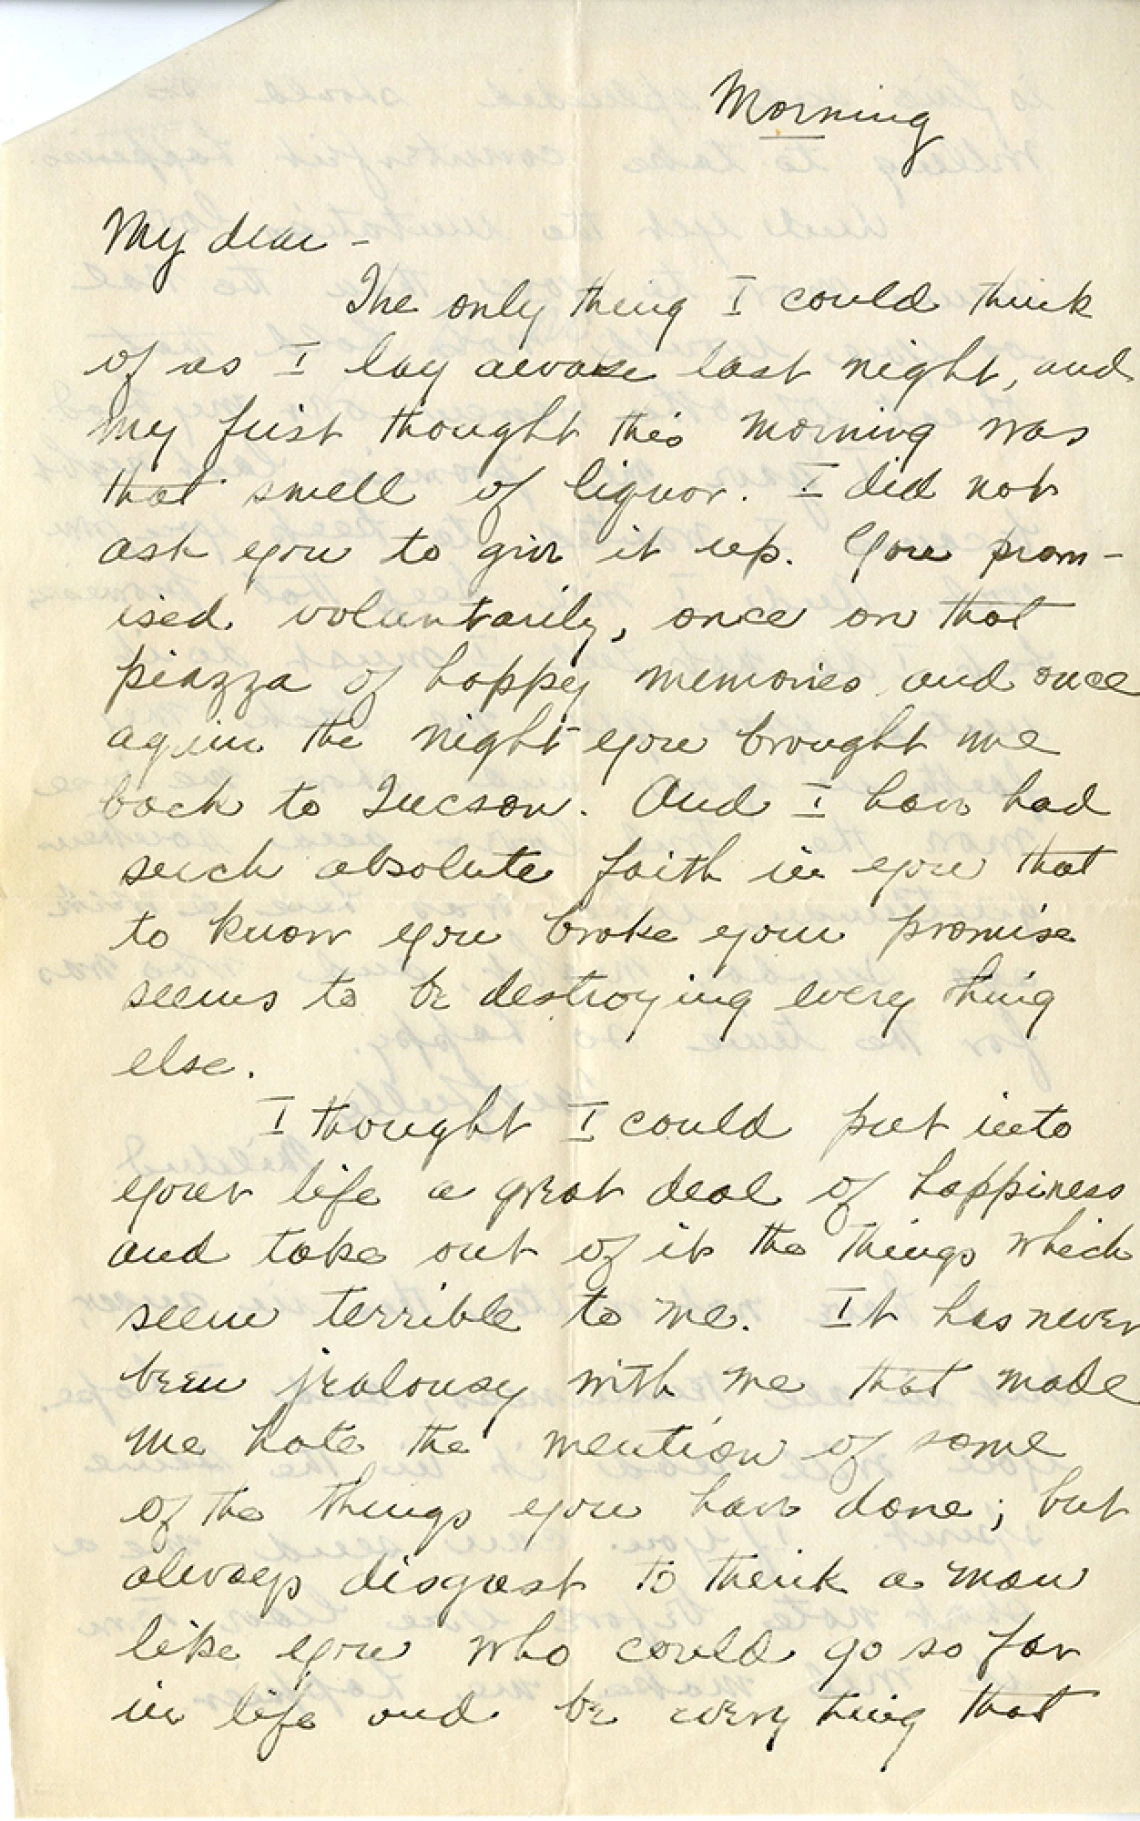 Morning
My dear -
The only thing I could think
of as I lay awake last night, and
my first thought this morning was
that smell of liquor. I did not
ask you to give it up. You prom-
ised voluntarily, once on that
piazza of happy memories and once
again the night you brought me
back to Tucson. And I have had
such absolute faith in you that
to know you broke your promise
seems to be destroying every thing
else.
I thought I could put into
your life a great deal of happiness
and take out of it the things which
seem terrible to me. It has never
been jealousy with me that made
me hate the mention of some
of the things you have done; but
always disgust to think a man
like you who could go so far
in life and be every thing that